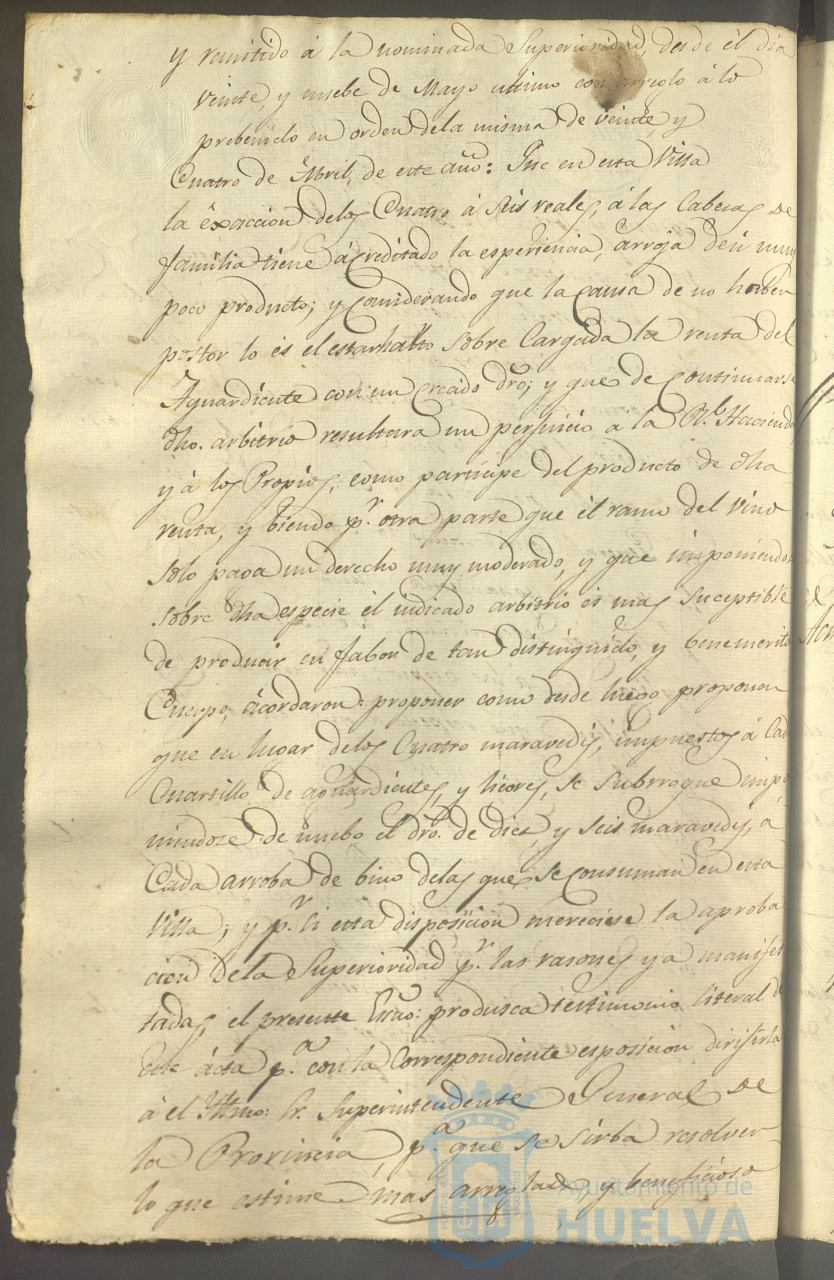 y remitido á la nominada Superioridad, desde él dia
veinte, y nuebe de Mayo ultimo con arreglo á lo
prebenido en orden dela misma de veinte, y
Cuatro de Abril, de este año: Que en esta Villa
la éxaccion delos Cuatro á seis reales, á las Cabesas de
familia tiene ácreditado la esperiencia, arroja de si muy
poco producto; y Considerando que la Causa de no haber
postor lo és el estarhalto sobre Cargada la renta del
Aguardiente con un Crecido dro; y que de Continuarse
dho. arbitrio resultara un perjuicio a la Rl. Hacienda
y á los Propios, como participe del producto de dha
renta, y biendo pr. otra parte que él ramo del vino
solo paga un derecho muy moderado, y que imponiendo
sobre dha especie él indicado arbitrio és mas suceptible
de producir en fabor de tan distinguido, y benemerito
Cuerpo, ácordaron: proponer como desde luego proponen
que en lugar delos Cuatro maravedis, impuestos á Cad
Cuartillo de aguardientes, y licores, se subrrogue impo
niendose de nuebo el dro. de dies, y seis maravedis, á
Cada arroba de bino delas que se Consuman en esta
Villa; y pr. si esta disposicion mereciese la aproba
cion dela Superioridad pr. las rasones ya manifes
tadas, el presente Esno: produsca testimonio literal de
Este ácta pa. con la Correspondiente esposicion dirijirla
á el Yltmo: Sr. Superintendente General de
la Provincia, pa. que se sirba resolver
lo que estime mas arreglado y beneficioso
Ayuntamiento de
HUELVA